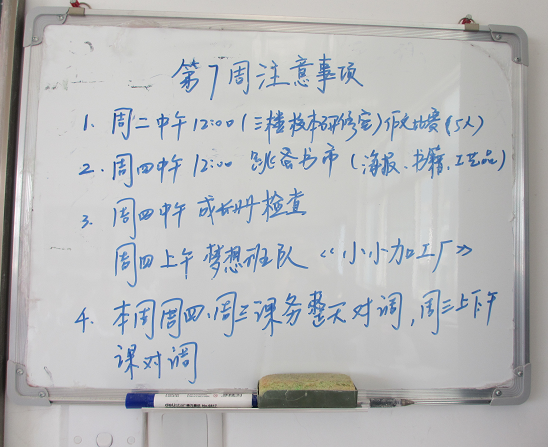 第7周注意事项
1. 周二中午12:00(三楼校本研修室)作比赛(5人)
2. 周四中午12:00 跳蚤书市(海报、书籍、工艺品)
3. 周四中午 成长册检查
周四上午 梦想班队 《小小加工厂》
4. 本周周四、周三课务整天对调,周三上下午
课对调